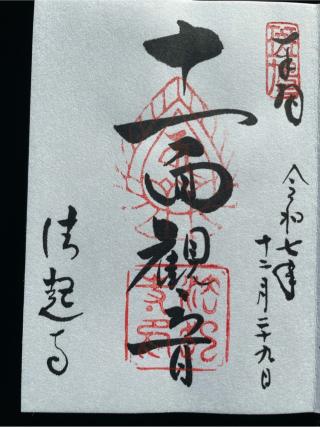 奉拝
令和七年
十二月二十九日
十一面観音
法起寺